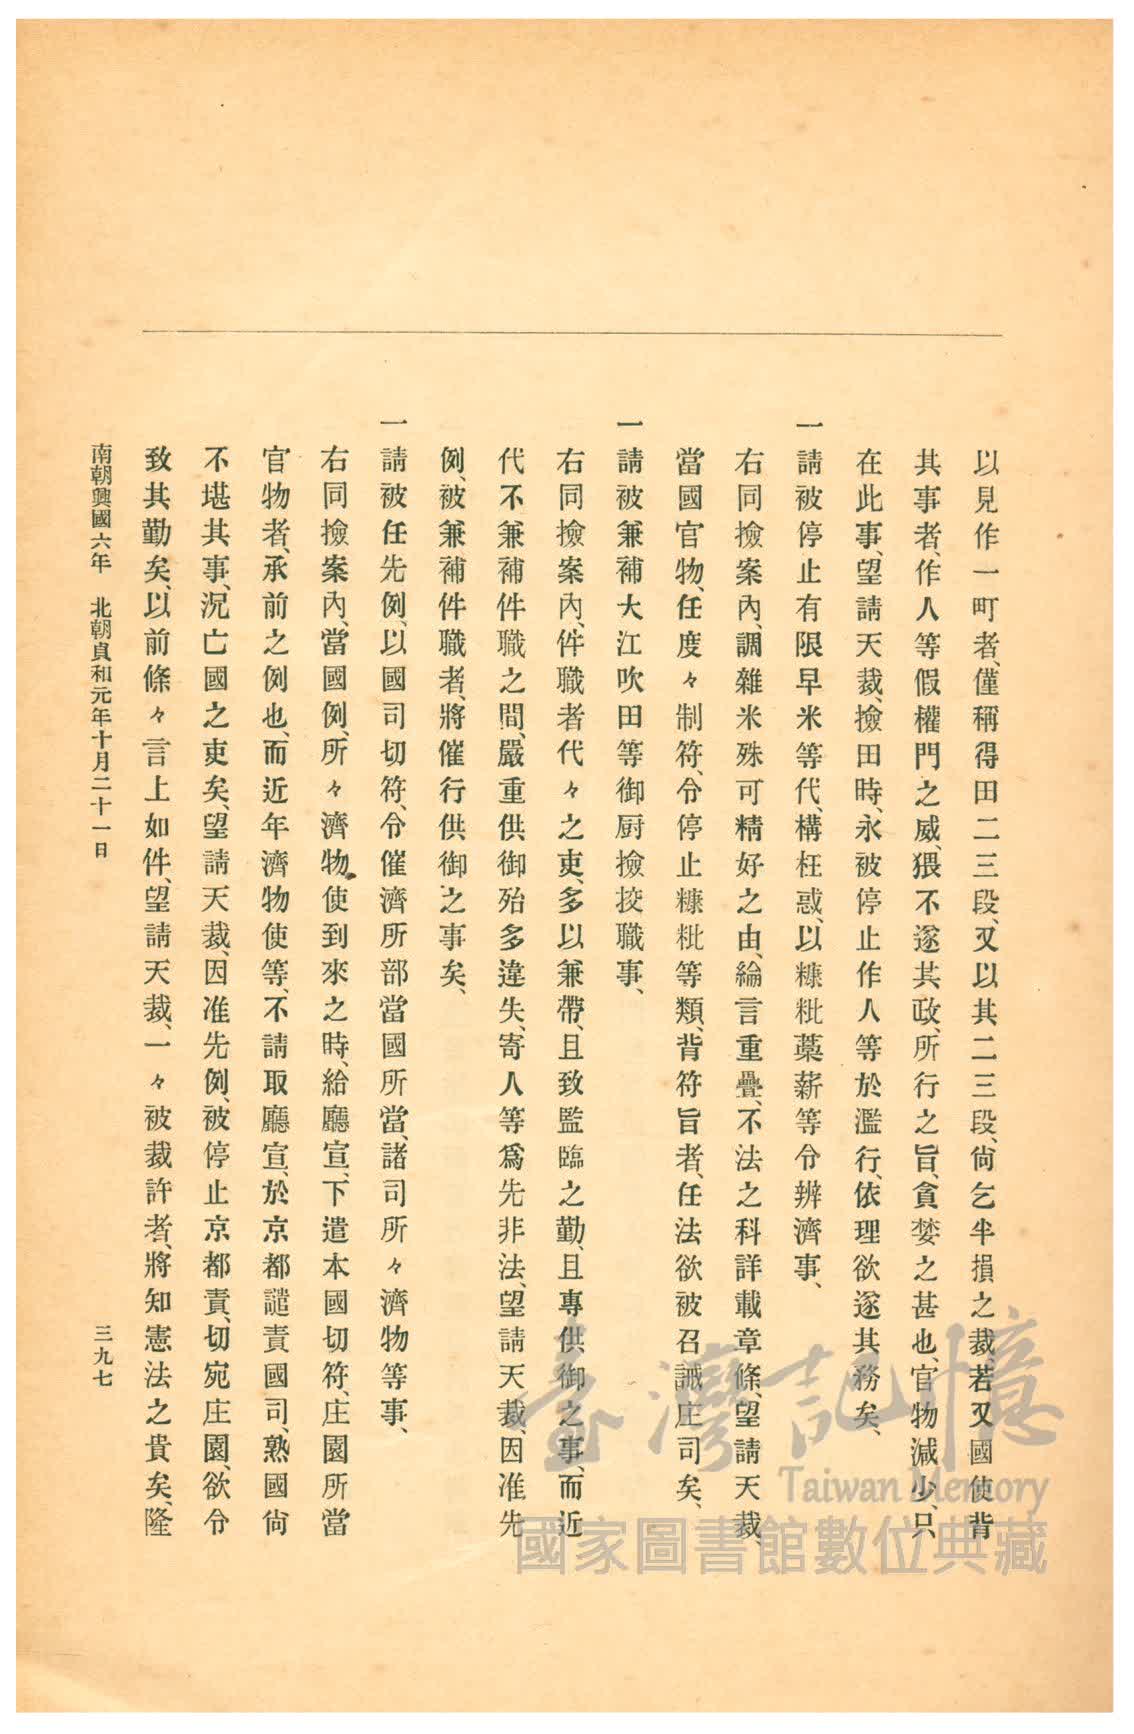 以見作一町者、僅稱得田二三段、又以其二三段、尙乞半損之裁、若又國使背
其事者、作人等假權門之威、猥不遂其政、所行之旨、貪婪之甚也、官物減少、只
在此事、望請天裁、撿田時、永被停止作人等於濫行、依理欲遂其務矣、
一請被停止有限早米等代、構枉惑、以糠粃藁薪等令辨濟事、
右同撿案內、調雜米殊可精好之由、綸言重疊、不法之科詳載章條、望請天裁、
當國官物、任度々制符、令停止糠粃等類、背符旨者、任法欲被召誡庄司矣、
一請被兼補大江吹田等御厨撿挍職事、
右同撿案內、件職者代々之吏、多以兼帶、且致監臨之勤、且專供御之事、而近
代不兼補件職之間、嚴重供御殆多違失、寄人等爲先非法、望請天裁、因准先
例、被兼補件職者、將催行供御之事矣、
一請被任先例、以國司切符、令催濟所部當國所當、諸司所々濟物等事、
右同撿案內、當國例、所々濟物使到來之時、給廳宣、下遣本國切符、庄園所當
官物者、承前之例也、而近年濟物使等、不請取廳宣、於京都譴責國司、熟國尙
不堪其事、況亡國之吏矣、望請天裁、因准先例、被停止京都責、切宛庄園、欲令
致其勤矣、以前條々言上如件、望請天裁、一々被裁許者、將知憲法之貴矣、隆
南朝興國六年　北朝貞和元年十月二十一日
三九七
臺灣記憶
Taiwan Memory
國家圖書館數位典藏